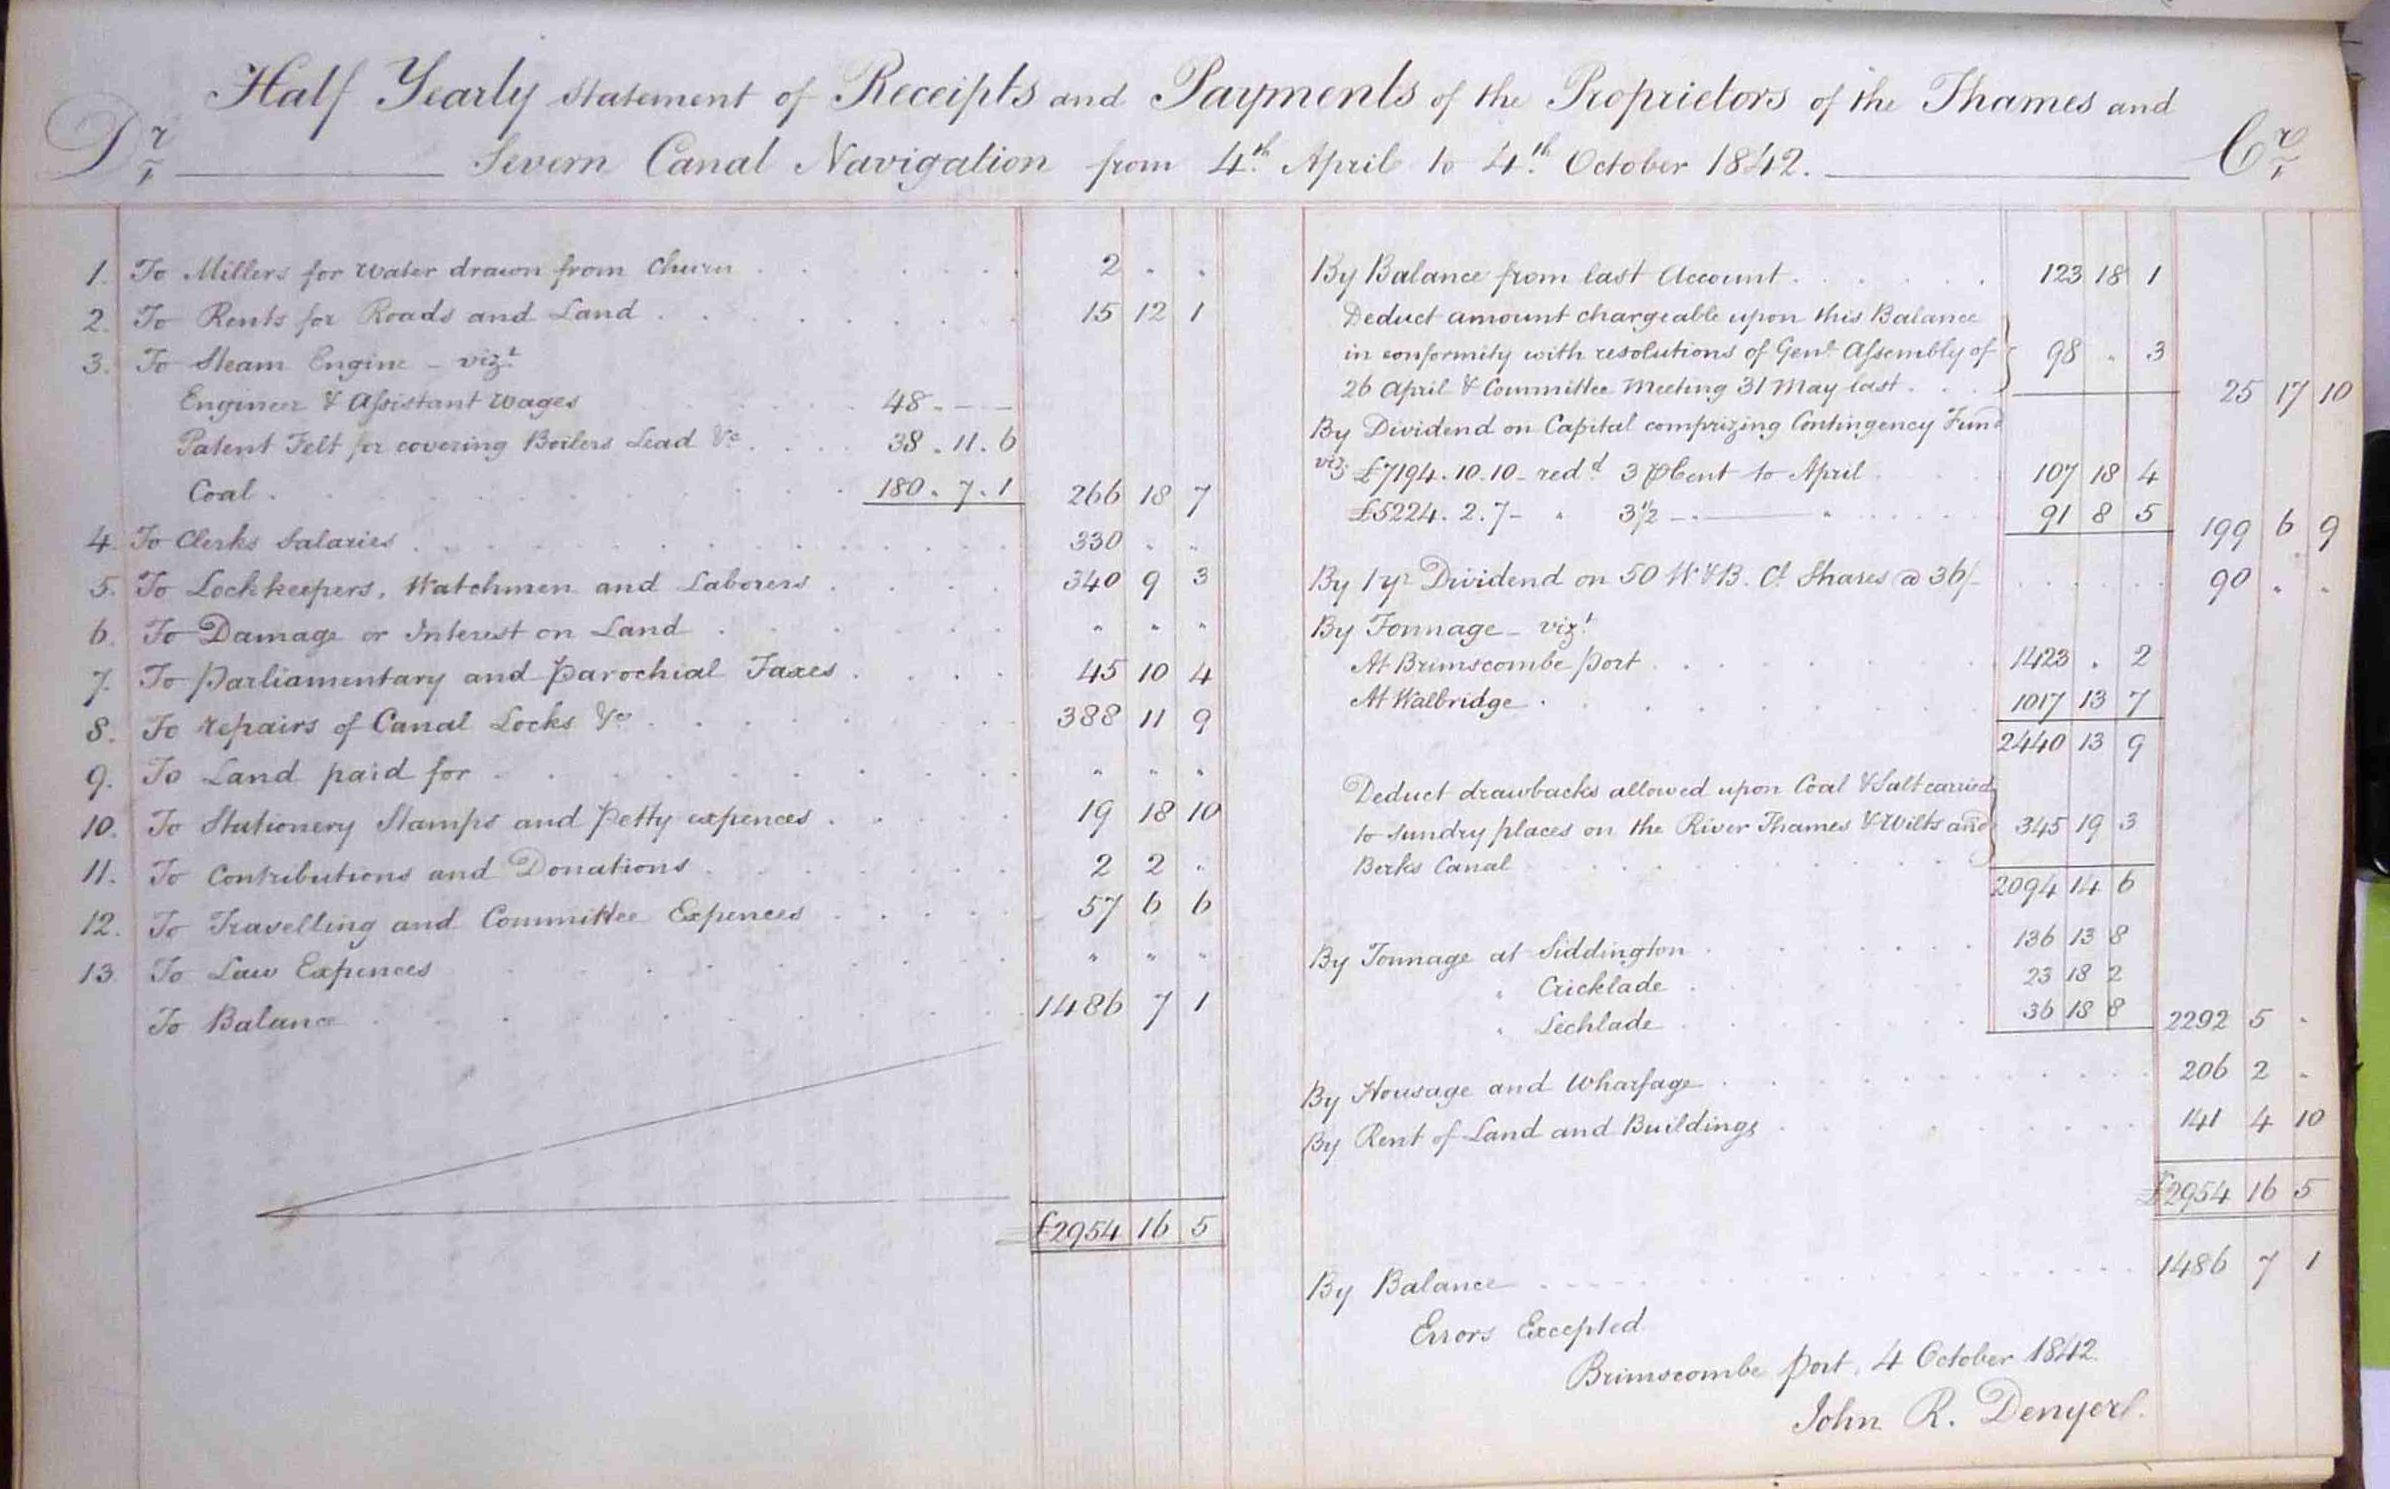 Half Yearly Statement of Receipts and Payments of the Proprietors of the Thames and
Dr Severn Canal Navigation from 4th April to 4th October 1842. Cr
1. To Millers for Water drawn from Churn . . . 2 " "
2. To Rents for Roads and Land . . . 15 12 1
3. To Steam Engine - vizt
Engineer & Assistant Wages 48 . - -
Patent Felt for covering Boilers Lead &c . . . 38 . 11 . 6
Coal . . . 180 . 7 . 1 266 18 7
4. To Clerks Salaries . . . 330 " "
5. To Lockkeepers, Watchmen and Laborers . . . 340 9 3
6. To Damage or Interest on Land . . . " " "
7. To Parliamentary and Parochial Taxes . . . 45 10 4
8. To repairs of Canal Locks &c . . . 388 11 9
9. To Land paid for . . . " " "
10. To Stationery Stamps and Petty expences . . . 19 18 10
11. To Contributions and Donations . . . 2 2 "
12. To Travelling and Committee Expences . . . 57 6 6
13. To Law Expences . . . " " "
To Balance . . . 1486 7 1
£2954 16 5
By Balance from last Account . . . 123 18 1
Deduct amount chargeable upon this Balance
in conformity with resolutions of Genl Assembly of 98 " 3
26 April & Committee Meeting 31 May last . . . 25 17 10
By Dividend on Capital comprizing Contingency Fund
viz £7194. 10. 10 - redd 3 ⅌Cent to April 107 18 4
£5224. 2. 7 - " 3½ - " - " . . . 91 8 5 199 6 9
By 1 yr Dividend on 50 W & B. Cl Shares @ 36/- . . . 90 " "
By Tonnage - vizt
At Brimscombe Port . . . 1423 " 2
At Walbridge . . . 1017 13 7
2440 13 9
Deduct drawbacks allowed upon Coal & Salt carried
to sundry places on the River Thames & Wilts and 345 19 3
Berks Canal
2094 14 6
By Tonnage at Siddington . . . 136 13 8
" Cricklade . . . 23 18 2
" Lechlade . . . 36 18 8 2292 5 "
By Housage and Wharfage . . . 206 2 "
By Rent of Land and Buildings . . . 141 4 10
£2954 16 5
By Balance . . . 1486 7 1
Errors Excepted
Brimscombe Port, 4 October 1842.
John R. Denyer